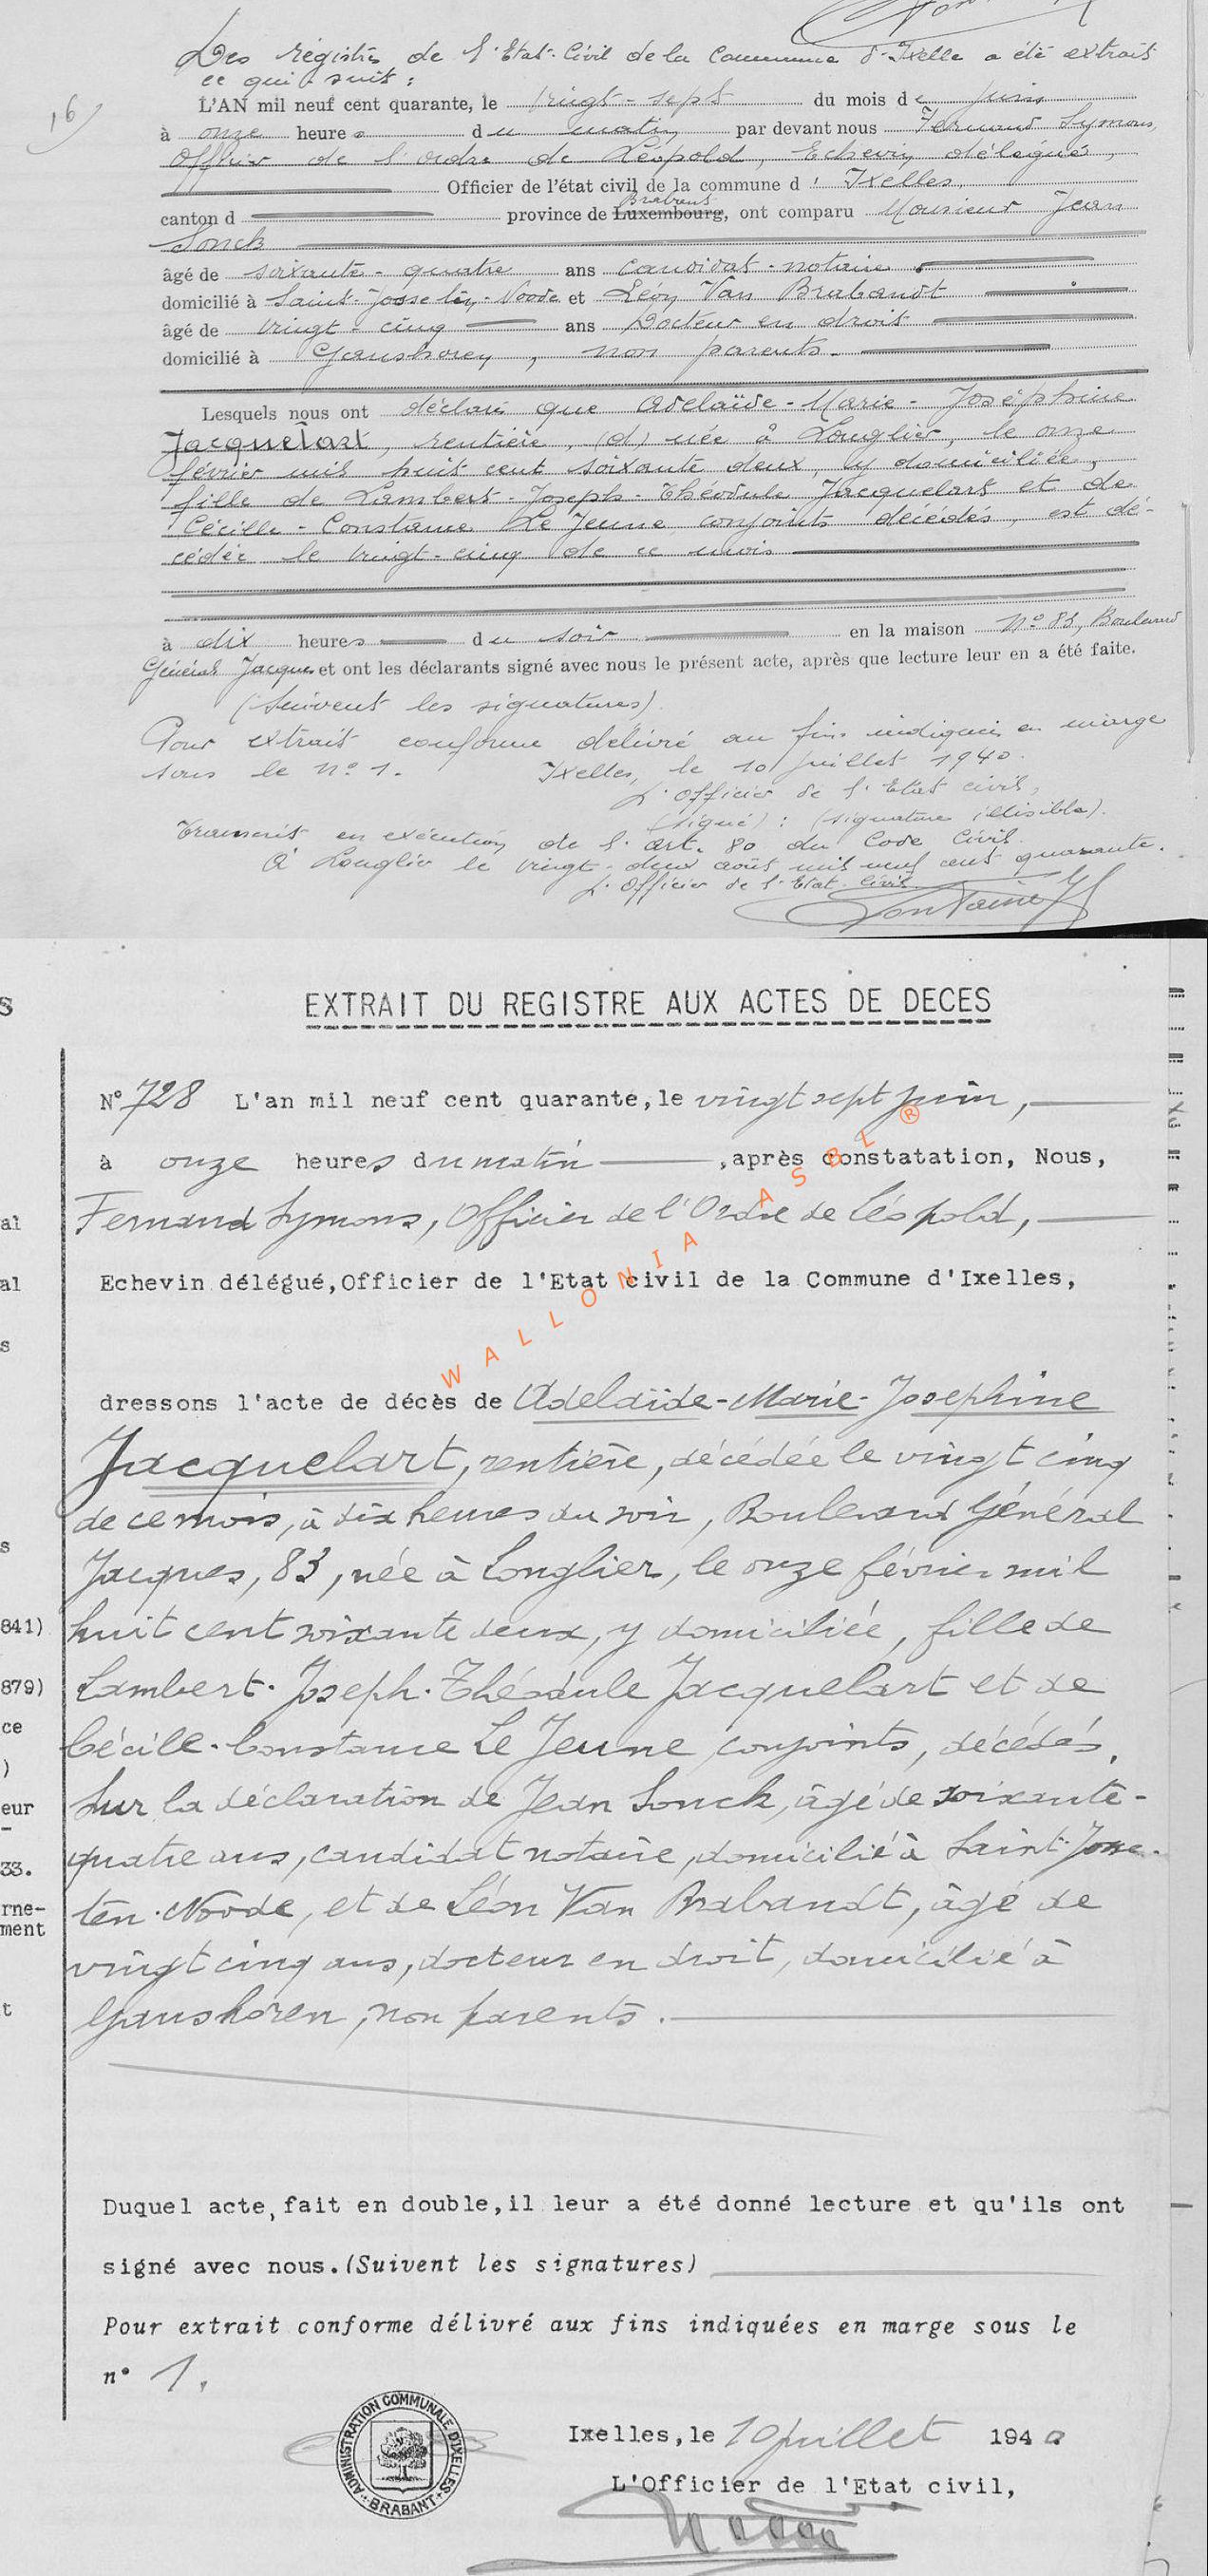 Des registres de l'Etat-Civil de la Commune d'Ixelle a été extrait
ce qui suit :
16)
L'AN mil neuf cent quarante, le vingt-sept du mois de juin
à onze heures du matin, par devant nous Fernand Symons,
Officier de l'ordre de Léopold, Echevin délégué,
Officier de l'état civil de la commune d'Ixelles,
Brabant
canton d province de Luxembourg, ont comparu Monsieur Jean
Sonck
âgé de soixante-quatre ans candidat-notaire
domicilié à Saint-Josse ten-Noode et Léon Van Brabandt
âgé de vingt-cinq ans Docteur en droit
domicilié à Ganshoren, non parents.
Lesquels nous ont déclaré que Adelaïde-Marie-Joséphine
Jacquelart, rentière, (d) née à Longlier, le onze
février mil huit cent soixante deux, y domiciliée,
fille de Lambert-Joseph-Théodule Jacquelart et de
Cécille-Constance Le Jeune conjoints décédés, est dé-
cédée le vingt-cinq de ce mois
à dix heures du soir en la maison N° 83, Boulevard
Général Jacques et ont les déclarants signé avec nous le présent acte, après que lecture leur en a été faite.
(Suivent les signatures).
Pour extrait conforme délivré au fins indiquées en marge
sous le N° 1. Ixelles, le 10 juillet 1940.
L'Officier de l'Etat civil,
(signé) : (signature illisible).
Transcrit en exécution de l'art. 80 du Code Civil
A Longlier le vingt-deux août mil neuf cent quarante.
L'Officier de l'Etat-Civil
Fontaine
S
EXTRAIT DU REGISTRE AUX ACTES DE DECES
N° 728 L'an mil neuf cent quarante, le vingt sept juin,
à onze heures du matin, après constatation, Nous,
al Fernand Symons, Officier de l'Ordre de Léopold,
al Echevin délégué, Officier de l'Etat civil de la Commune d'Ixelles,
s
WALLONIA ASBL ®
dressons l'acte de décès de Adelaïde-Marie-Josephine
Jacquelart, rentière, décédée le vingt cinq
de ce mois, à dix heures du soir, Boulevard Général
s Jacques, 83, née à Longlier, le onze février mil
841) huit cent soixante deux, y domiciliée, fille de
879) Lambert-Joseph-Théodule Jacquelart et de
ce Cécile-Constance Le Jeune conjoints, décédés.
)
eur Sur la déclaration de Jean Sonck, âgé de soixante-
-
33. quatre ans, candidat notaire, domicilié à Saint-Josse-
rne- ten-Noode, et de Léon Van Brabandt, âgé de
ment
vingt cinq ans, docteur en droit, domicilié à
t Ganshoren, non parents.
Duquel acte, fait en double, il leur a été donné lecture et qu'ils ont
signé avec nous. (Suivent les signatures)
Pour extrait conforme délivré aux fins indiquées en marge sous le
n° 1.
ADMINISTRATION COMMUNALE D'IXELLES
BRABANT
Ixelles, le 10 juillet 1940
L'Officier de l'Etat civil,